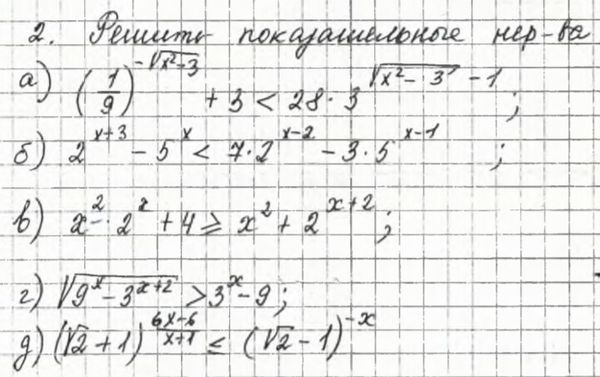 2. Решить показательные нер-ва
а) (1/9)^(-√(x²-3)) + 3 < 28·3^(√(x²-3) - 1);
б) 2^(x+3) - 5^x < 7·2^(x-2) - 3·5^(x-1);
в) x²·2^x + 4 ≥ x² + 2^(x+2);
г) √(9^x - 3^(x+2)) > 3^x - 9;
д) (√2+1)^((6x-6)/(x+1)) ≤ (√2-1)^(-x)